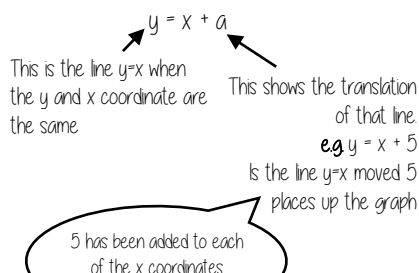 y = x + a
This is the line y=x when
the y and x coordinate are
the same
This shows the translation
of that line.
e.g. y = x + 5
Is the line y=x moved 5
places up the graph
5 has been added to each
of the x coordinates